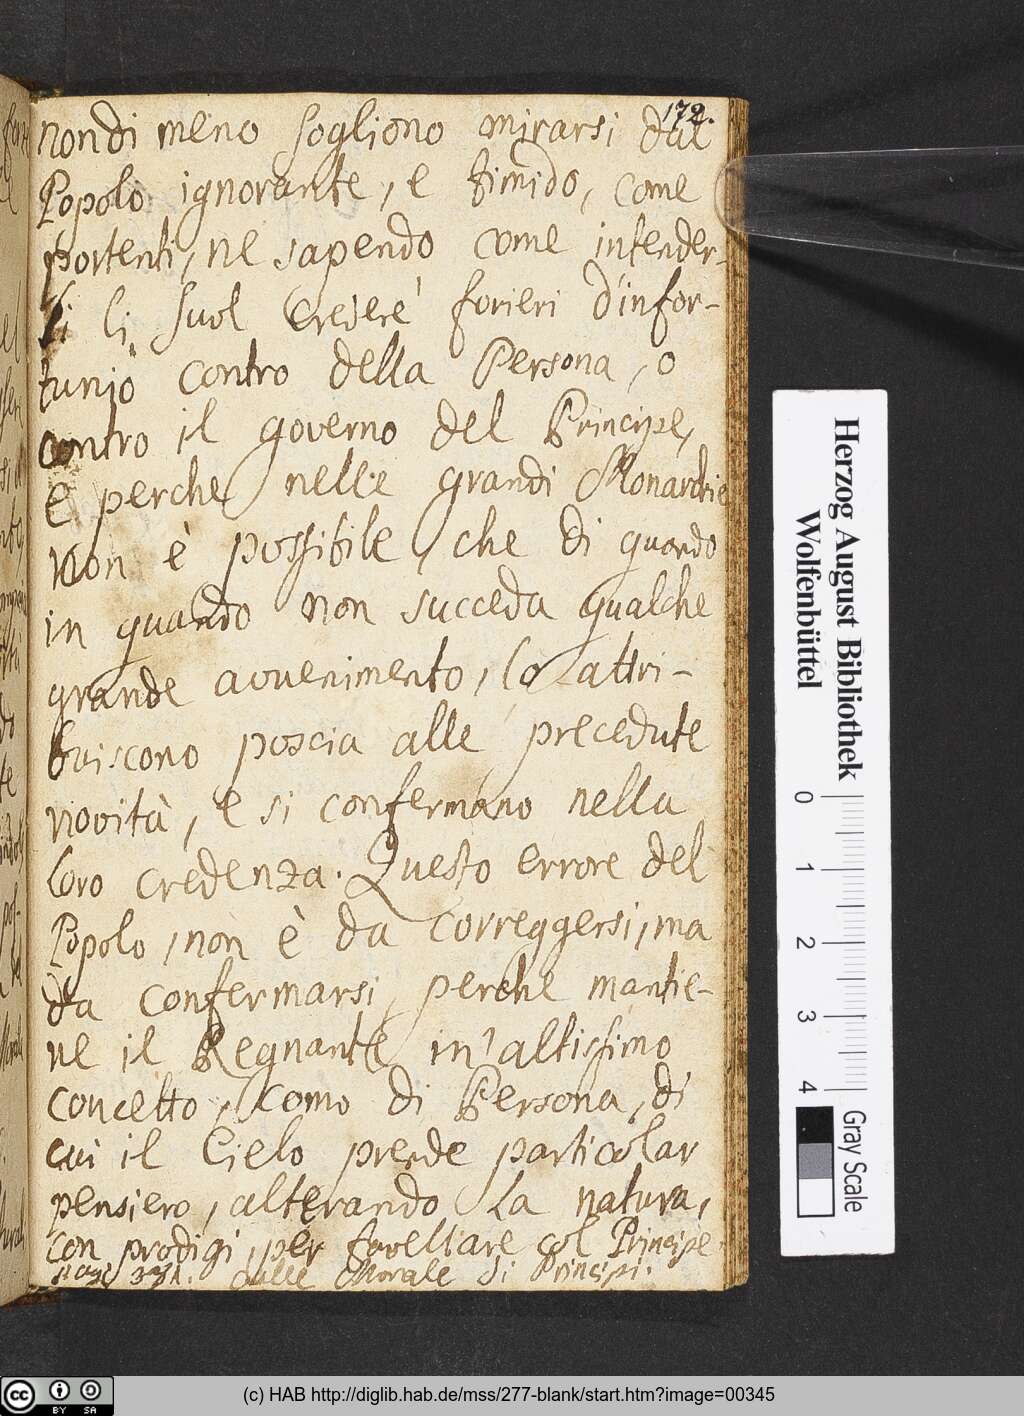 172.
nondi meno sogliono mirarsi dal
Popolo ignorante, e timido, come
portenti, ne sapendo come intender-
li li suol credere forieri d'infor-
tunio contro della Persona, o
contro il governo del Principe,
e perche nelle grandi Monarchie
non è possibile, che di quando
in quando non succeda qualche
grande avvenimento, lo attri-
buiscono poscia alle precedute
novità, e si confermano nella
loro credenza. Questo errore del
Popolo, non è da correggersi, ma
da confermarsi, perche mantie-
ne il Regnante in altissimo
concetto, como di Persona, di
cui il Cielo prende particolar
pensiero, alterando la natura,
con prodigi, per favellare col Principe.
371. dalle Morale di Principi.
Herzog August Bibliothek
Wolfenbüttel
0 1 2 3 4
Gray Scale
(c) HAB http://diglib.hab.de/mss/277-blank/start.htm?image=00345
cc BY SA